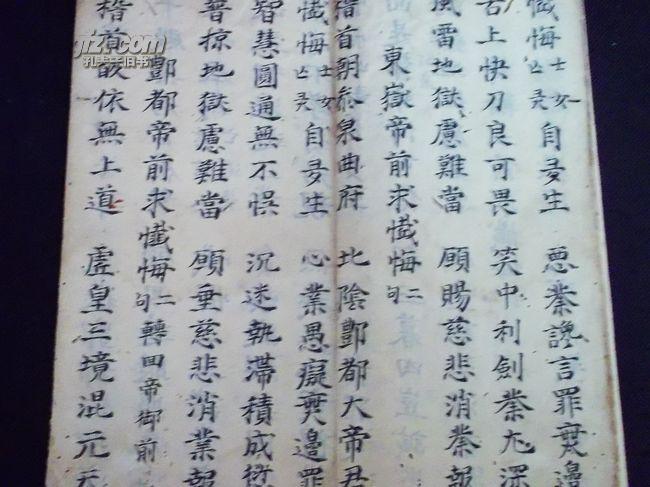 懺悔士女亡灵自多生 惡業讒言罪無邊
舌上快刀良可畏 笑中利劍業尤深
風雷地獄慮難當 願賜慈悲消業報
東嶽帝前求懺悔二句
稽首朝叅泉曲府 北陰酆都大帝君
懺悔士女亡灵自多生 心業愚癡無邊罪
智慧圓通無不悞 沉迷執滯積成愆
普掠地獄慮難當 願垂慈悲消業報
酆都帝前求懺悔二句 轉回帝御前
稽首皈依無上道 虛皇三境混元天